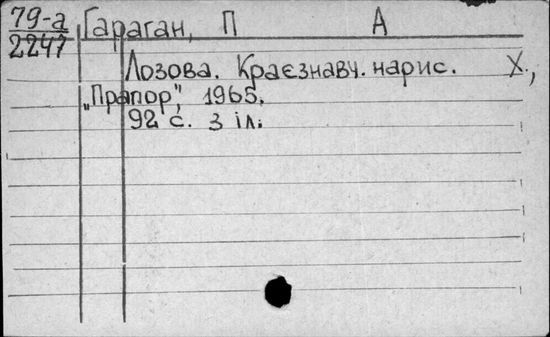 79-а Гараган, П А
2247
Лозова. Краєзнавч. нарис. Х.,
„Прапор", 1965.
92 с. з іл.